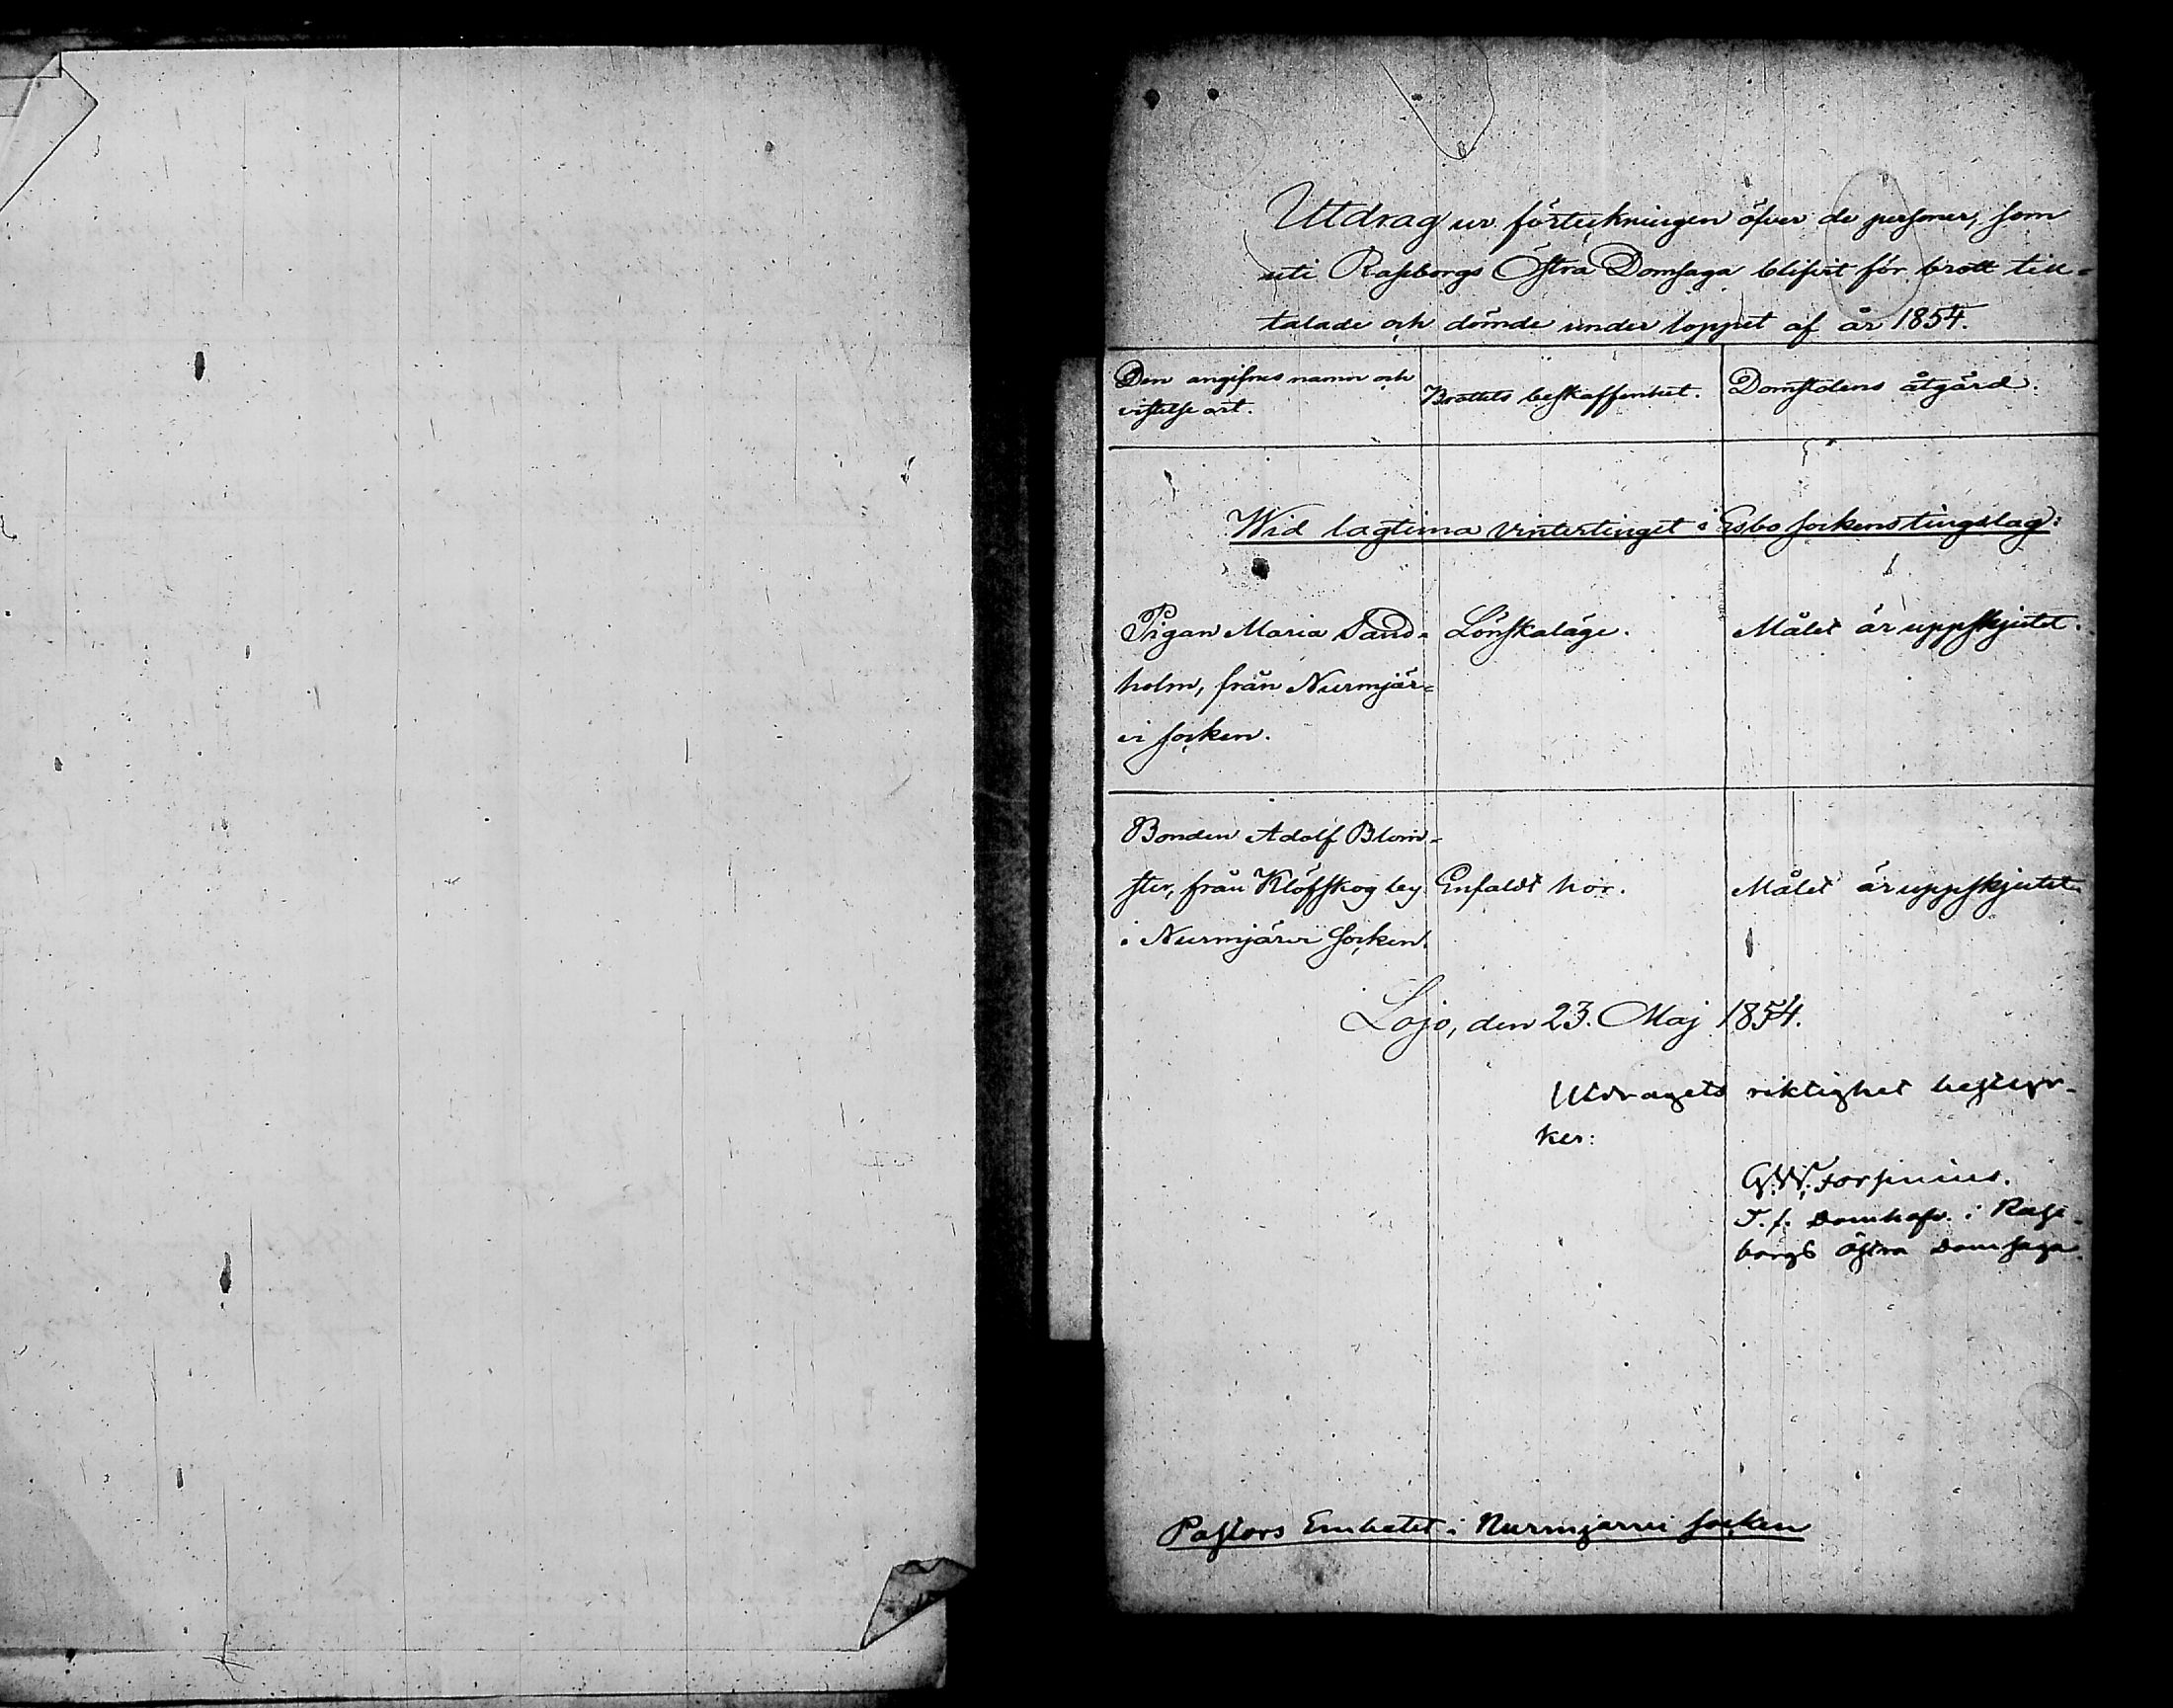 Utdrag ur förteckningen öfver de personer, som
uti Raseborgs Östra Domsaga blifvit för brott till-
talade och dömde under loppet af år 1854.
Den angifnes namn och
vistelse ort.
Brottets beskaffenhet.
Domstolens åtgärd.
Wid lagtima vintertinget i Esbo sockens tingslag:
Pigan Maria Sand-
holm, från Nurmijär-
vi socken.
Lönskaläge.
Målet är uppskjutet.
Bonden Adolf Blom-
ster, från Klöfskog by
i Nurmijärvi Socken.
Enfaldt hor.
Målet är uppskjutet
Lojo, den 23. Maj 1854.
Utdragets riktighet bestyr-
ker:
G. W. Forsenius.
T. f. Domhafv. i Rase-
borgs östra Domsaga.
Pastors Embetet i Nurmijarvi socken